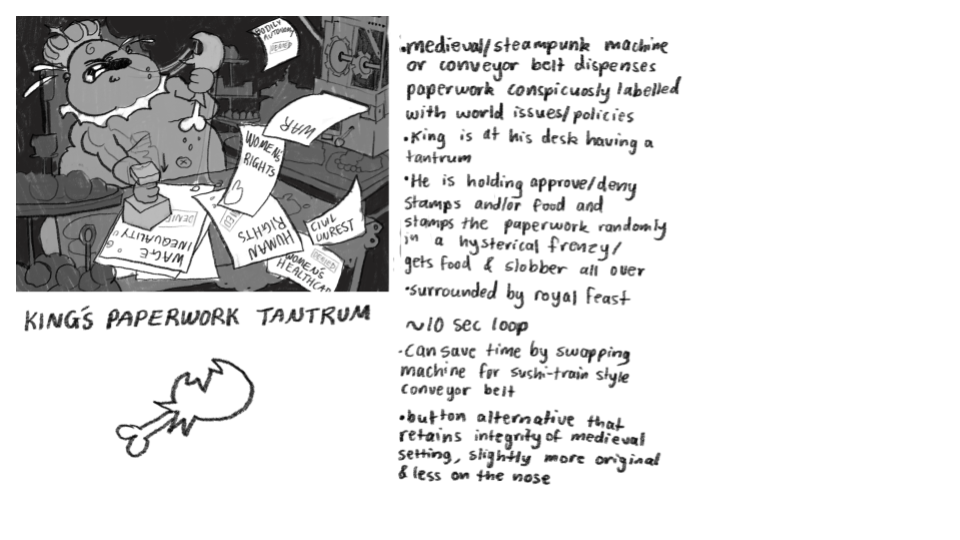 BODILY
AUTONOMY
DENIED
WAR
WOMEN'S
RIGHTS
DENIED
WAGE
INEQUALITY
HUMAN
RIGHTS
CIVIL
UNREST
DENIED
WOMEN'S
HEALTHCAR
KING'S PAPERWORK TANTRUM
•medieval/steampunk machine
or conveyor belt dispenses
paperwork conspicuosly labelled
with world issues/policies
•King is at his desk having a
tantrum
•He is holding approve/deny
stamps and/or food and
stamps the paperwork randomly
in a hysterical frenzy/
gets food & slobber all over
•surrounded by royal feast
~10 sec loop
-Can save time by swapping
machine for sushi-train style
conveyor belt
•button alternative that
retains integrity of medieval
setting, slightly more original
& less on the nose